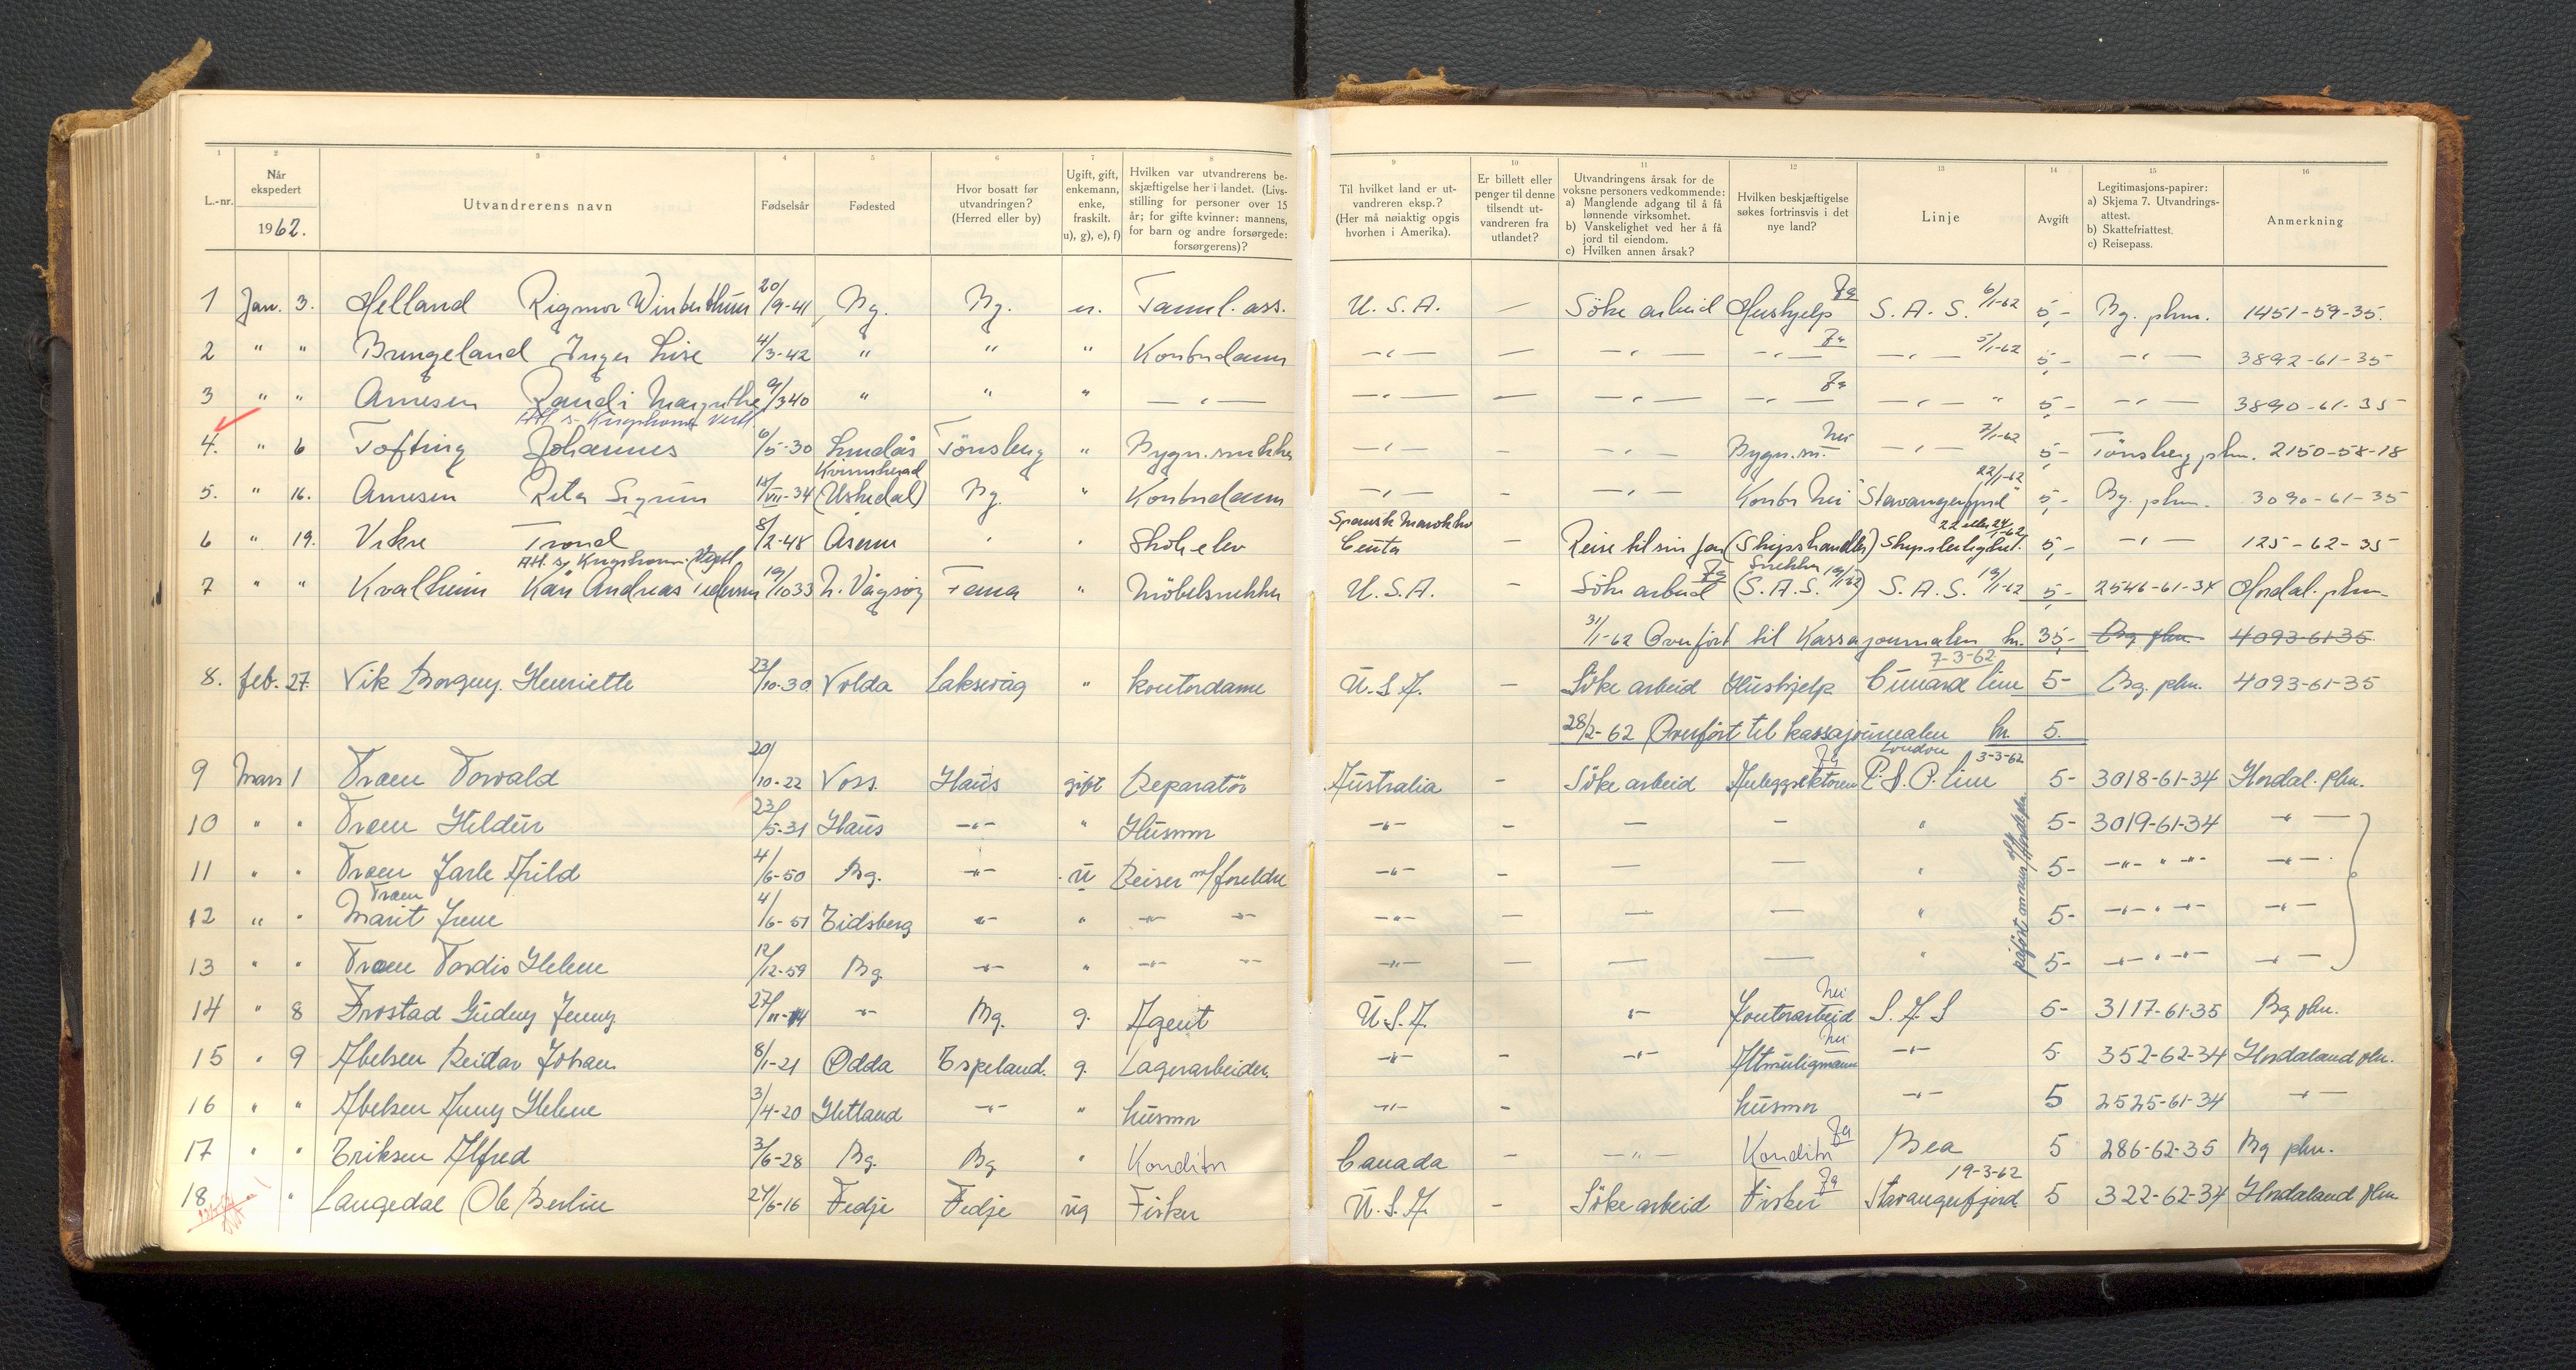 1 2 3 4 5 6 7 8 9 10 11 12 13 14 15 16
L.-nr. Når ekspedert 1962. Utvandrerens navn Fødselsår Fødested Hvor bosatt før utvandringen? (Herred eller by) Ugift, gift, enkemann, enke, fraskilt. u), g), e), f) Hvilken var utvandrerens beskjæftigelse her i landet. (Livsstilling for personer over 15 år; for gifte kvinner: mannens, for barn og andre forsørgede: forsørgerens)? Til hvilket land er utvandreren eksp.? (Her må nøiaktig opgis hvorhen i Amerika). Er billett eller penger til denne tilsendt utvandreren fra utlandet? Utvandringens årsak for de voksne personers vedkommende: a) Manglende adgang til å få lønnende virksomhet. b) Vanskelighet ved her å få jord til eiendom. c) Hvilken annen årsak? Hvilken beskjæftigelse søkes fortrinsvis i det nye land? Linje Avgift Legitimasjons-papirer: a) Skjema 7. Utvandringsattest. b) Skattefriattest. c) Reisepass. Anmerkning
1 Jan. 3. Helland Rigmor Winterthun 20/9-41 Bg. Bg. u. Tannl. ass. U.S.A. — Söke arbeid Hushjelp Ja S.A.S. 6/1-62 5,- Bg. pkm. 1451-59-35.
2 " " Bungeland Inger Lise 4/3-42 " " " Kontordame —"— — —"— —"— Ja —"— 5/1-62 5,- —"— 3892-61-35
3 " " Arnesen Randi Margrethe 9/3 40 " " " —"— —"— — —"— —"— Ja —"— " 5,- —"— 3890-61-35
4. " 6 Tofting Johannes 6/5-30 Lindås Tönsberg " Bygn.snekker —"— - —"— Bygn.sn. Nei —"— 7/1-62 5,- Tönsberg pkm. 2150-58-18
5. " 16. Arnesen Rita Sigrun 12/VII-34 Kvinnherad (Uskedal) Bg. " Kontordame —"— - —"— Kontor Nei "Stavangerfjord" 22/1-62 5,- Bg. pkm. 3090-61-35
6 " 19. Vikse Trond 8/2-48 Asene " " Skoleelev Spansk Marokko Ceuta — Reise til sin far (Skipshandler) Skipsleilighet. 22 eller 24/1-62 5,- —"— 125-62-35
7 " " Kvalheim Kåre Andreas Pedersen 19/10 33 N. Vågsöy Fana " Möbelsnekker U.S.A. - Söke arbeid Ja Snekker (S.A.S. 19/1-62) S.A.S. 19/1-62 5,- 2546-61-34 Hordal. pkm.
31/1-62 Overfört til Kassajournalen kr. 35,- Bg. pkm. 4093-61-35
8. feb. 27. Vik Borgny Henriette 23/10-30 Volda Laksevåg " kontordame U.S.A. - Söke arbeid Hushjelp Cunard line 7-3-62 5- Bg. pkm. 4093-61-35
28/2-62 Overfört til kassajournalen kr. 5.
9 Mars 1 Træen Torvald 20/10-22 Voss Haus gift Reparatör Australia - Söke arbeid Anleggsektoren Ja P.&O. line London 3-3-62 5- 3018-61-34 Hordal. pkm.
10 " " Træen Hildur 23/5-31 Haus —"— " Husmor —"— - — — " 5- 3019-61-34 —"—
11 " " Træen Jarle Arild 4/6-50 Bg. —"— u Reiser m/foreldre —"— - — — " 5- —"— " —"— —"—
12 " " Træen Marit Irene 4/6-51 Eidsberg —"— " —"— —"— —"— — — — " 5- —"— " —"— —"—
13 " " Træen Tordis Helene 12/12-59 Bg. —"— " —"— —"— —"— — — — " 5- —"— " —"— —"—
14 " 8 Frostad Gudny Jenny 27/11-14 —"— Bg. g. Agent U.S.A. "— Kontorarbeid Nei S.A.S 5- 3117-61-35 Bg pkm.
15 " 9 Abelsen Reidar Johan 8/1-21 Odda Espeland. g. Lagerarbeider. —"— - —"— Altmuligmann Nei —"— 5 352-62-34 Hordaland pkm.
16 " " Abelsen Anny Helene 3/4-20 Hetland —"— " husmor —"— - husmor —"— 5 2525-61-34 —"—
17 " " Eriksen Alfred 3/6-28 Bg. Bg " Konditor Canada - —"— Konditor Ja Bea 5 286-62-35 Bg pkm.
18 " Langedal Ole Berlin 24/6-16 Fedje Fedje ug Fisker U.S.A. - Söke arbeid Fisker Ja Stavangerfjord 19-3-62 5 322-62-34 Hordaland pkm